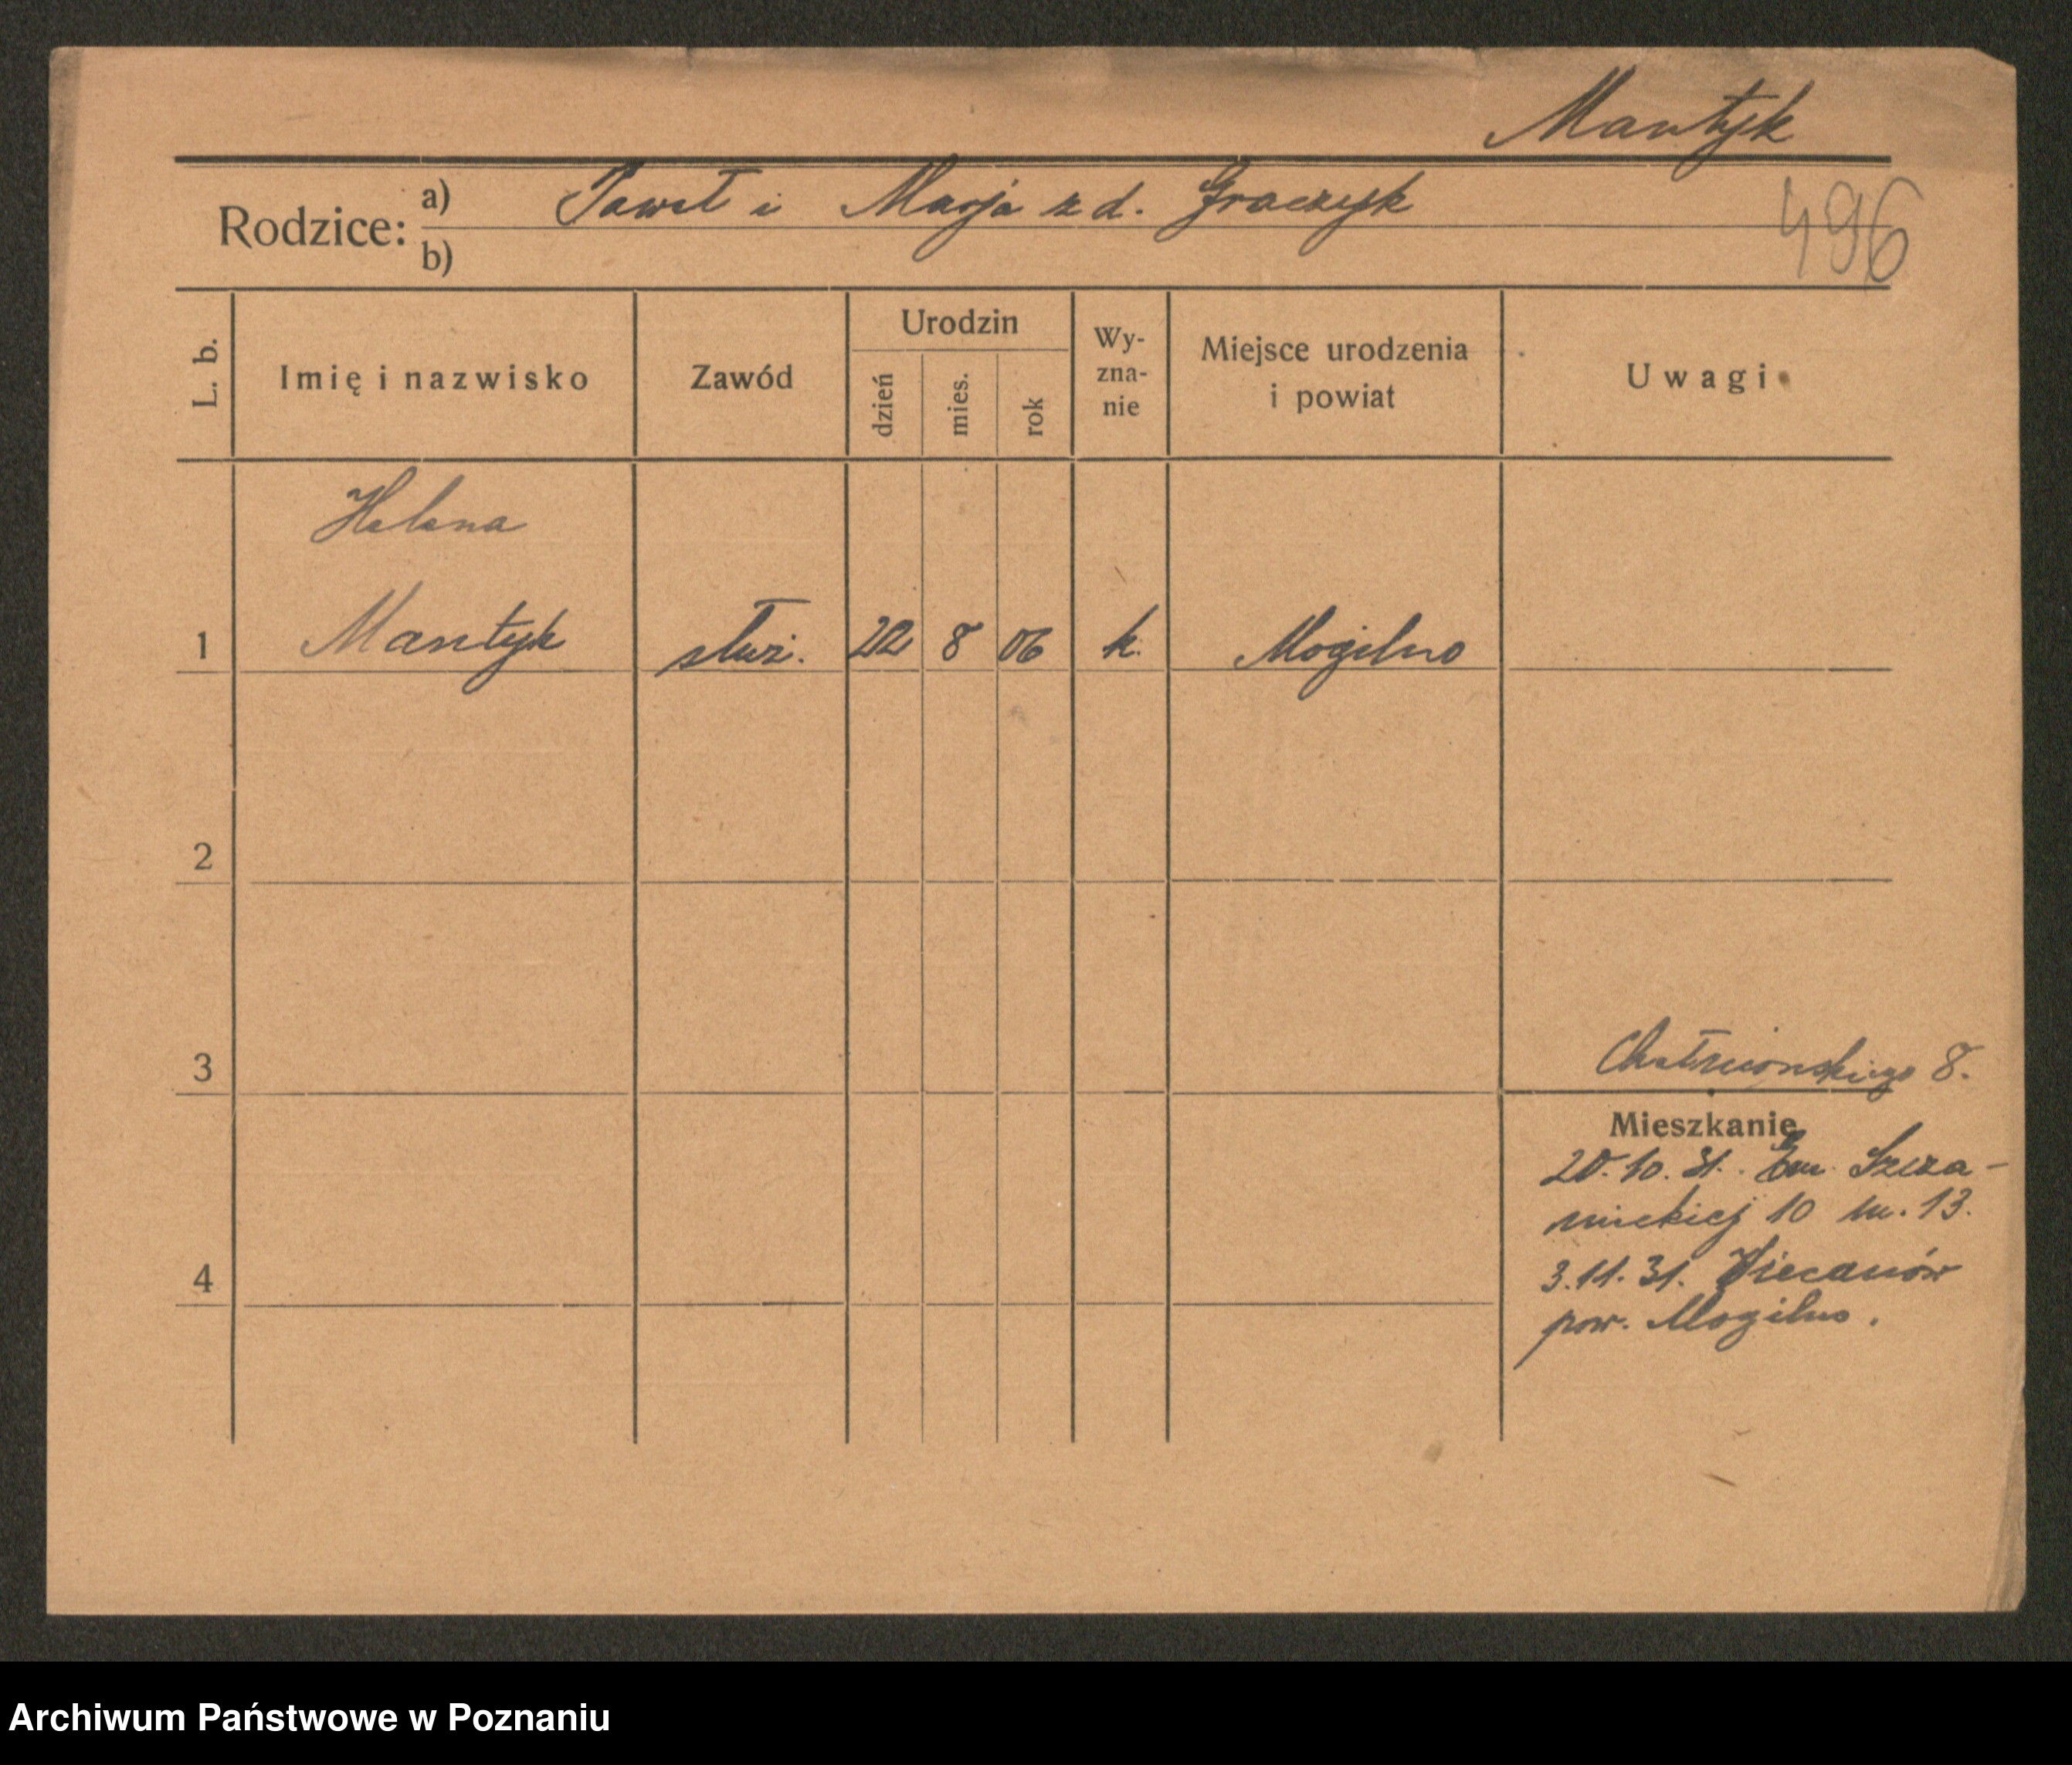 Mantyk
Rodzice: a) Paweł i Marja z d. Graczyk
b)
496
L. b.
Imię i nazwisko
Zawód
Urodzin
dzień
mies.
rok
Wy-
zna-
nie
Miejsce urodzenia
i powiat
Uwagi
Helena
1 Mantyk służ. 22 8 06 k. Mogilno
2
3
Chełmońskiego 8.
Mieszkanie
20.10.31. Em. Szcza-
nieckiej 10 m. 13.
4
3.11.31. Wiecanów
pow. Mogilno.
Archiwum Państwowe w Poznaniu